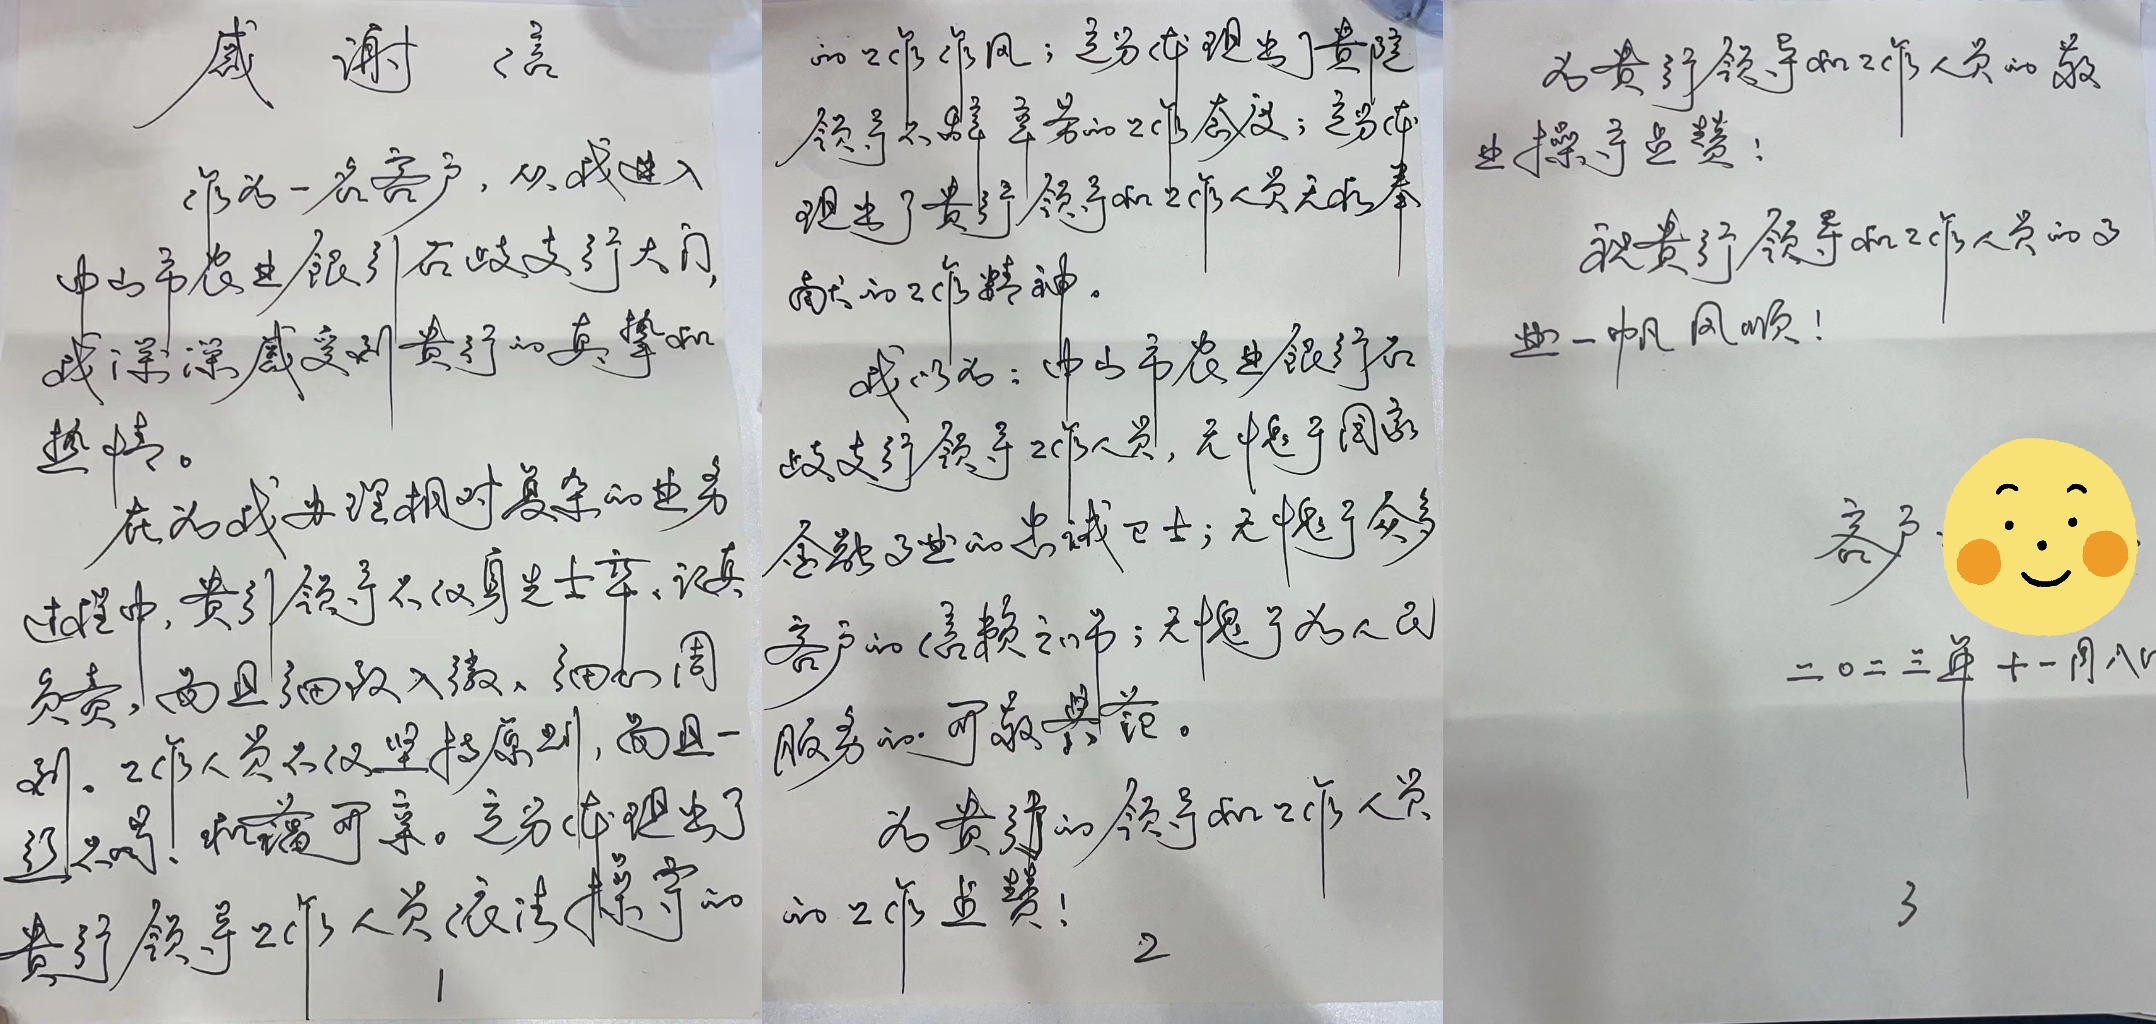 感谢信
作为一名客户，从我进入
中山市农业银行石岐支行大门，
我深深感受到贵行的真挚和
热情。
在为我办理相对复杂的业务
过程中，贵行领导不仅身先士卒、认真
负责，而且细致入微、细心周
到。工作人员不仅坚持原则，而且一
丝不苟、和蔼可亲。充分体现出了
贵行领导工作人员依法操守的
1
的工作作风；充分体现出了贵院
领导不辞辛劳的工作态度；充分体
现出了贵行领导和工作人员无私奉
献的工作精神。
我以为：中山市农业银行石
岐支行领导工作人员，无愧于国家
金融事业的忠诚卫士；无愧于众多
客户的信赖之师；无愧于为人民
服务的可敬典范。
为贵行的领导和工作人员
的工作点赞！
2
为贵行领导和工作人员的敬
业操守点赞！
祝贵行领导和工作人员的事
业一帆风顺！
客户
二〇二三年十一月八日
3